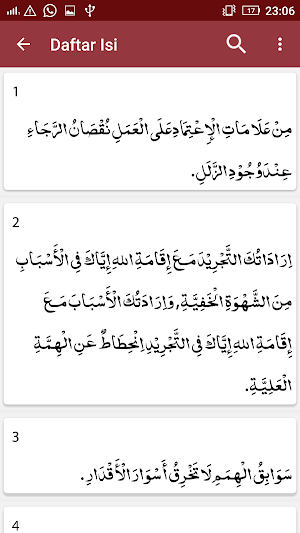 17 23:06
Daftar Isi
1
مِنْ عَلَامَاتِ الْإِعْتِمَادِ عَلَى الْعَمَلِ نُقْصَانُ الرَّجَاءِ
عِنْدَ وُجُوْدِ الزَّلَلِ.
2
اِرَادَتُكَ التَّجْرِيْدَ مَعَ إِقَامَةِ اللهِ إِيَّاكَ فِى الْأَسْبَابِ
مِنَ الشَّهْوَةِ الْخَفِيَّةِ, وَاِرَادَتُكَ الْأَسْبَابَ مَعَ
إِقَامَةِ اللهِ إِيَّاكَ فِى التَّجْرِيْدِ اِنْحِطَاطٌ عَنِ الْهِمَّةِ
الْعَلِيَّةِ.
3
سَوَابِقُ الْهِمَمِ لَا تَخْرِقُ أَسْوَارَ الْأَقْدَارِ.
4